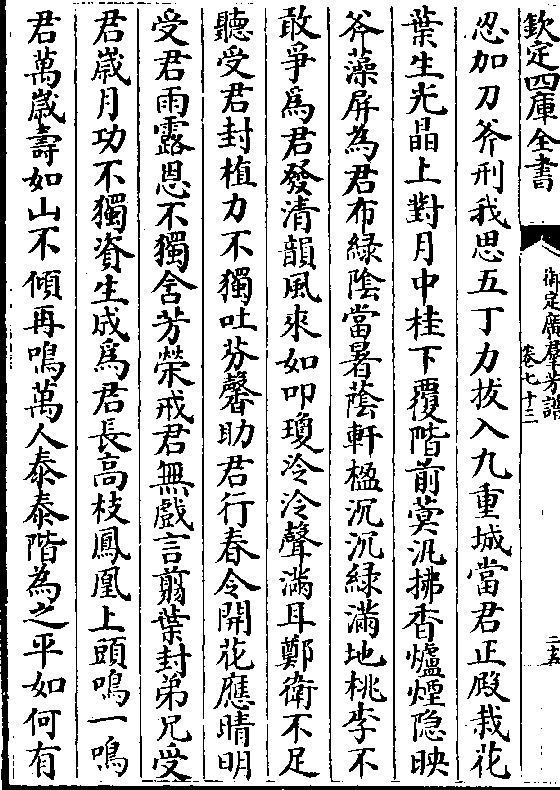 欽定四庫全書
御定廣羣芳譜
卷七十三
二五
忍加刀斧刑我思五丁力拔入九重城當君正殿栽花
葉生光晶上對月中桂下覆階前蓂汎拂香爐煙隐映
斧藻屏為君布綠陰當暑蔭軒楹沉沉綠滿地桃李不
敢爭爲君發清韻風來如叩瓊泠泠聲滿耳鄭衛不足
聽受君封植力不獨吐芬馨助君行春令開花應晴明
受君雨露恩不獨含芳榮戒君無戲言剪葉封弟兄受
君歲月功不獨資生成爲君長高枝鳳凰上頭鳴一鳴
君萬歲壽如山不傾再鳴萬人泰泰階為之平如何有